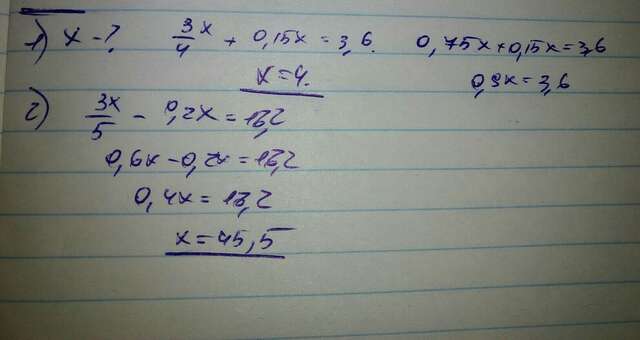 1) x - ? 3/4 x + 0,15x = 3,6. 0,75x + 0,15x = 3,6
x = 4. 0,9x = 3,6
2) 3x/5 - 0,2x = 18,2
0,6x - 0,2x = 18,2
0,4x = 18,2
x = 45,5